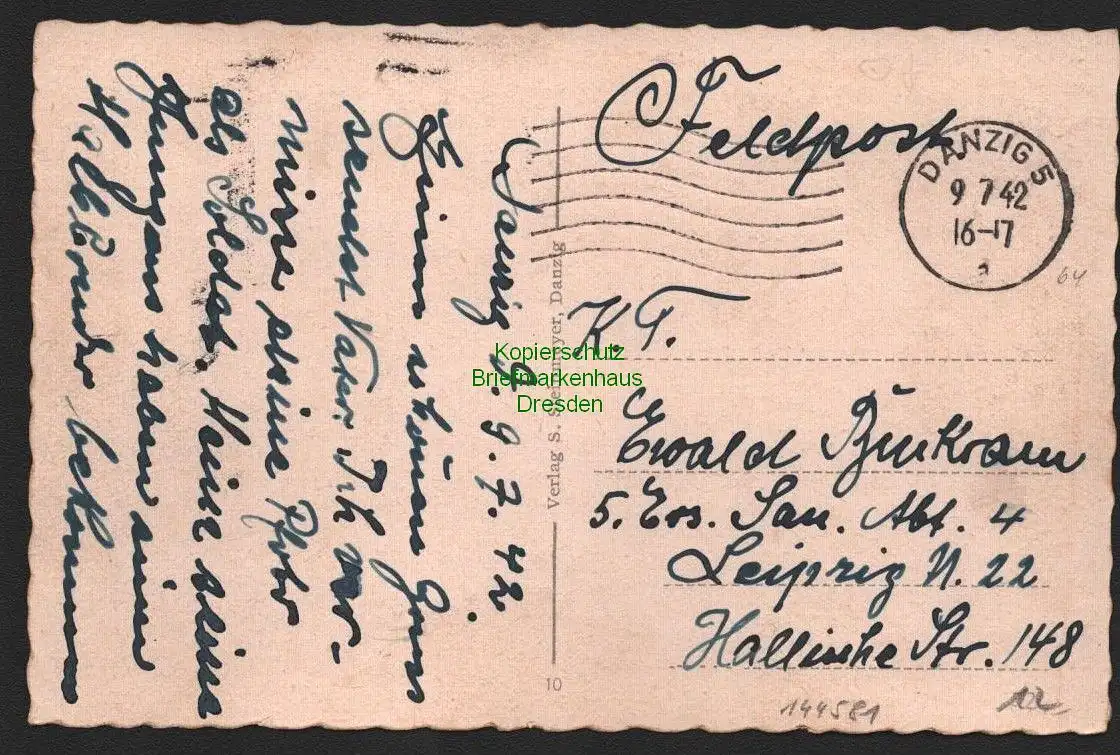 Feldpost
DANZIG 5
9 7 42
16-17
a
K. T.
Ewald
5. Ers. San. Abt. 4
Leipzig N. 22
Hallische Str. 148
Danzig 9. 7. 42.
Einen schönen Gruss
sendet Vater. Ich
meine kleine Photo
als Soldat. Meine kleine
Jungens haben eine
bekommen
Verlag S. Steinmeyer, Danzig
10
64
144581
12
Kopierschutz
Briefmarkenhaus
Dresden